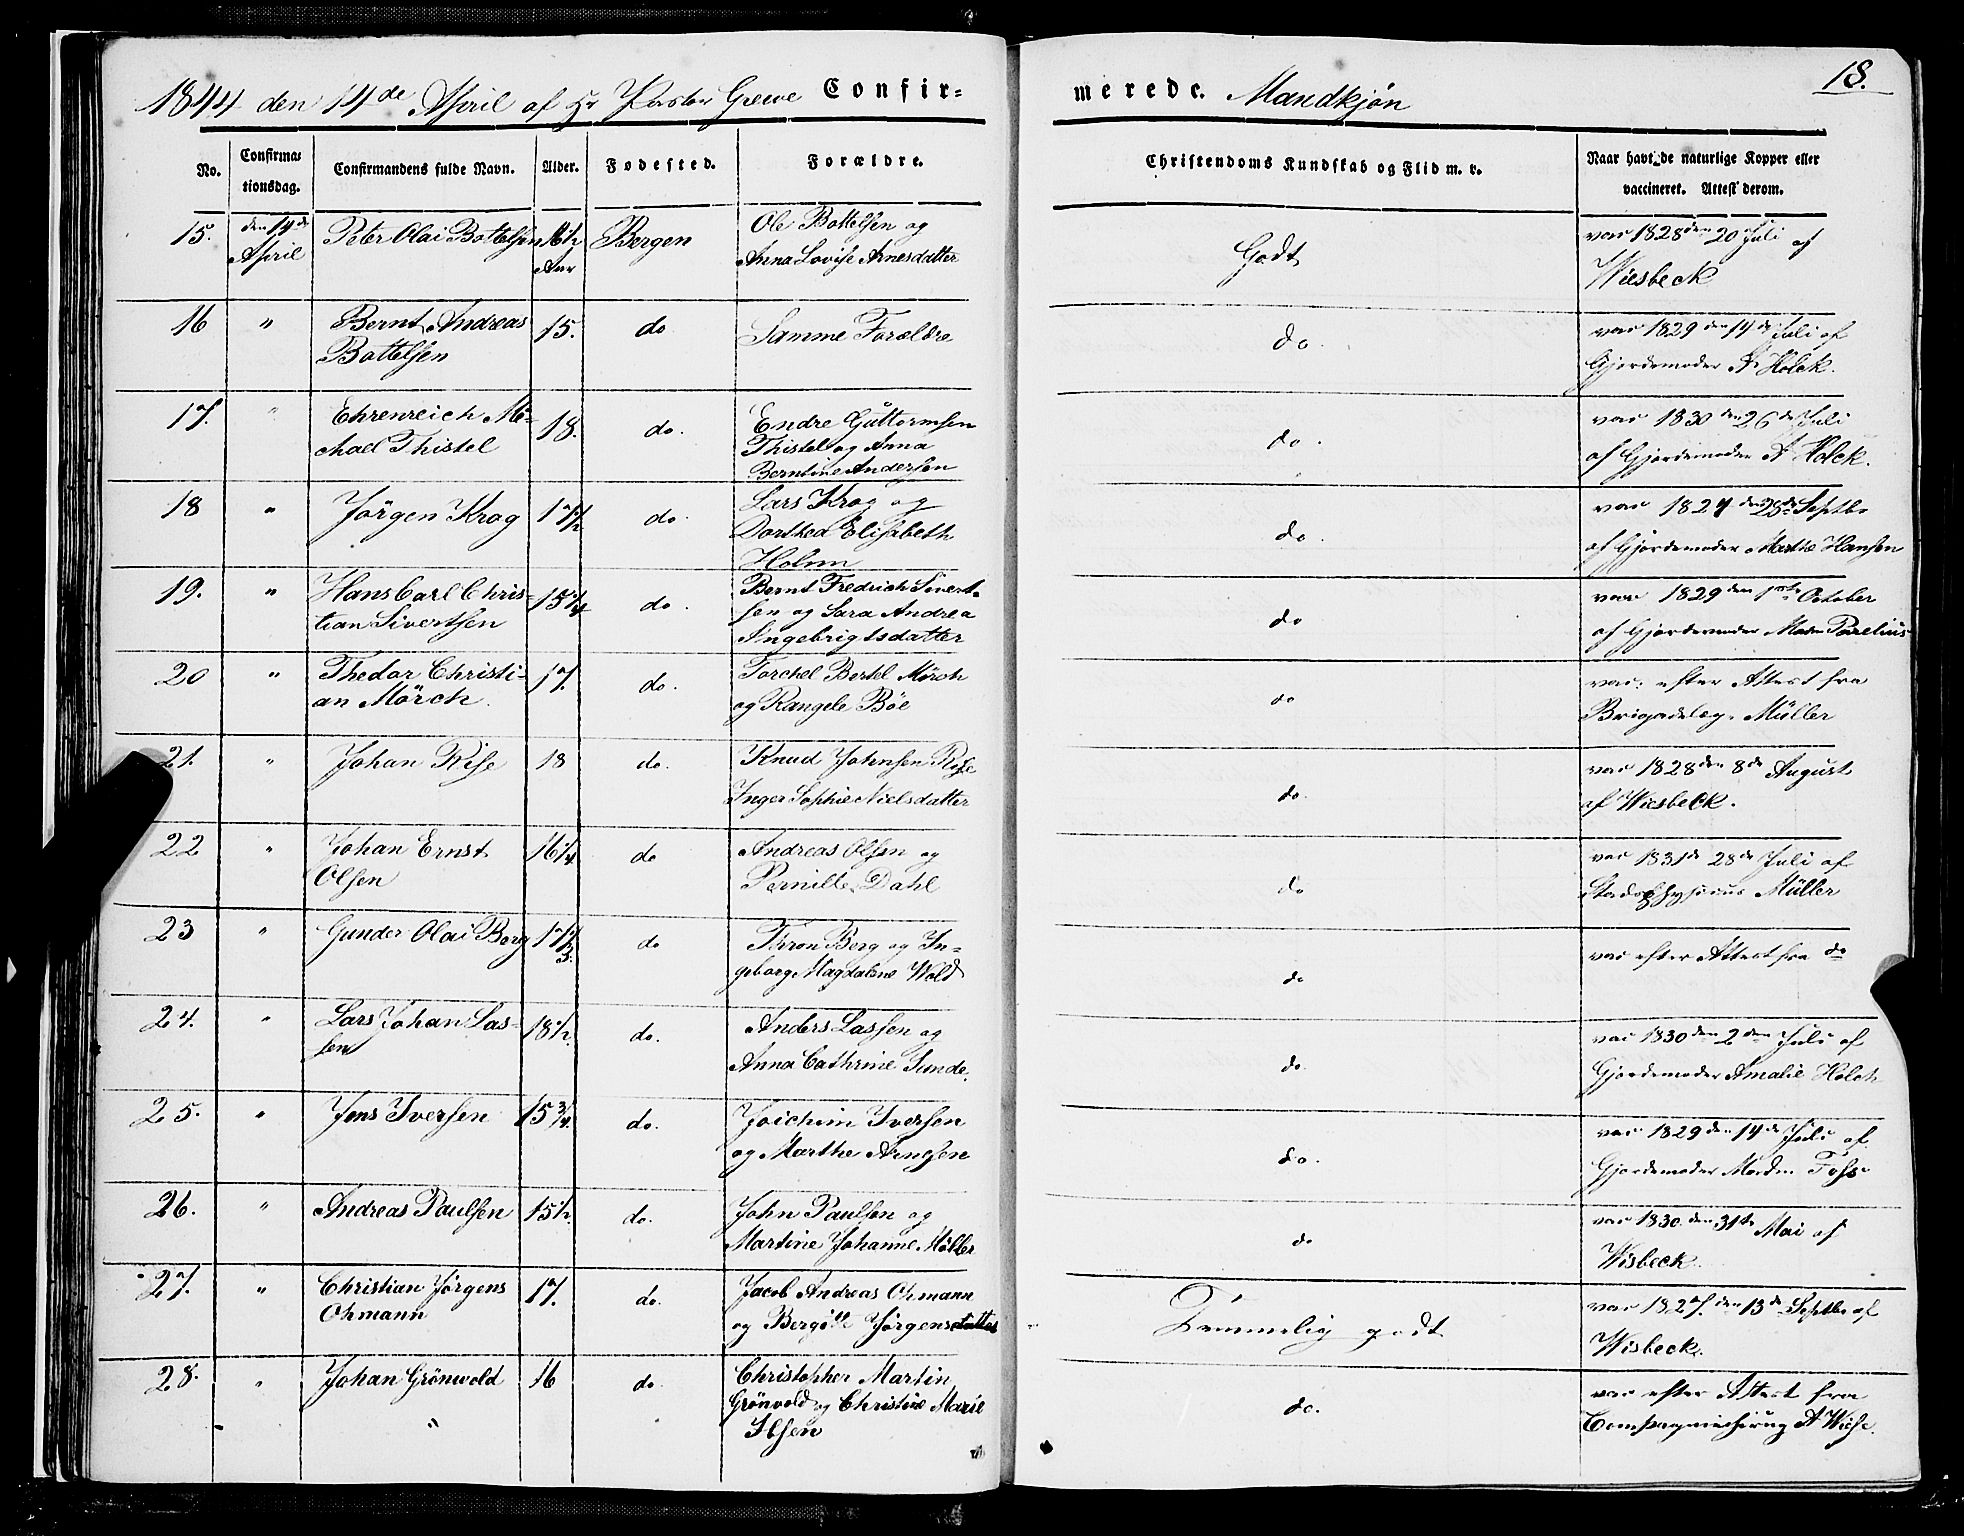 1844 den 14de April af Hr Pastor Greve Confir=
merede. Mandkjøn
18.
No. Confirma= tionsdag. Confirmandens fulde Navn. Alder. Fodested. Forældre. Christendoms Kundskab og Flid m. v. Naar havt de naturlige Kopper eller
vaccineret. Attest derom.
15. den 14de Peter Olai Bottelsen 16 1/2 Bergen Ole Bottelsen og Godt vac 1828 den 20 Juli af
April Aar Anna Lovise Arnesdatter Wiesbeck
16 " Bernt Andreas 15. do Samme Forældre do. vac 1829 den 14de Juli af
Bottelsen Gjordemoder A Holck.
17. " Ehrenreich Mi- 18. do. Endre Guttormsen do. vac 1830 den 26de Juli
chael Thistel Thistel og Anna af Gjordemoder A Holck.
Berntine Andersen
18 " Jörgen Krog 17 1/2 do Lars Krog og do. vac 1827 den 28de Septbr
Dorthea Elisabeth af Gjordemoder Marthe Hansen
Holm
19. " Hans Carl Chris- 15 1/4 do. Bernt Fredrich Sivert- do vac 1829 den 1ste October
tian Sivertsen sen og Sara Andrea af Gjordemoder Mad. Parelius
Ingebrigtsdatter
20 " Thedor Christi- 17. do. Torchel Bertel Mörch do vac: efter Attest fra
an Mörch. og Rangele Böe Brigadelæg. Müller
21. " Johan Rise 18 do. Knud Johnsen Rise do. vac 1828 den 8de August
Inger Sophie Nielsdatter af Wiesbeck.
22 " Johan Ernst 16 1/4 do Andreas Olsen og do vac 1831 28de Juli af
Olsen Pernille Dahl Stadsphysicus Müller
23 " Gunder Olai Berg 17 1/3. do Thron Berg og In- do vac efter Attest fra do
geborg Magdalene Wold
24. " Lars Johan Las- 18 1/2. do. Anders Lassen og do. vac 1830 den 2den Juli af
sen Anna Cathrine Sunde. Gjordemoder Amalie Holck
25. " Jens Iversen 15 3/4. do. Joichim Iversen do. vac 1829 den 14de Juli af
og Marthe Arnesen Gjordemoder Madm Foss
26. " Andreas Paulsen 15 1/2. do. John Paulsen og do vac 1830 den 31te Mai af
Martine Johanne Möller Wisbeck.
27. " Christian Jørgens 17. do. Jacob Andreas Ohmann Temmelig godt vac 1827. den 13de Septbr af
Ohmann og Jörgensdatter Wisbeck.
28. " Johan Grönwold 16 do. Christopher Martin do. vac efter Attest fra
" Grönvold og Christine Marie Compagniechirug A Wiese.
Ilsen